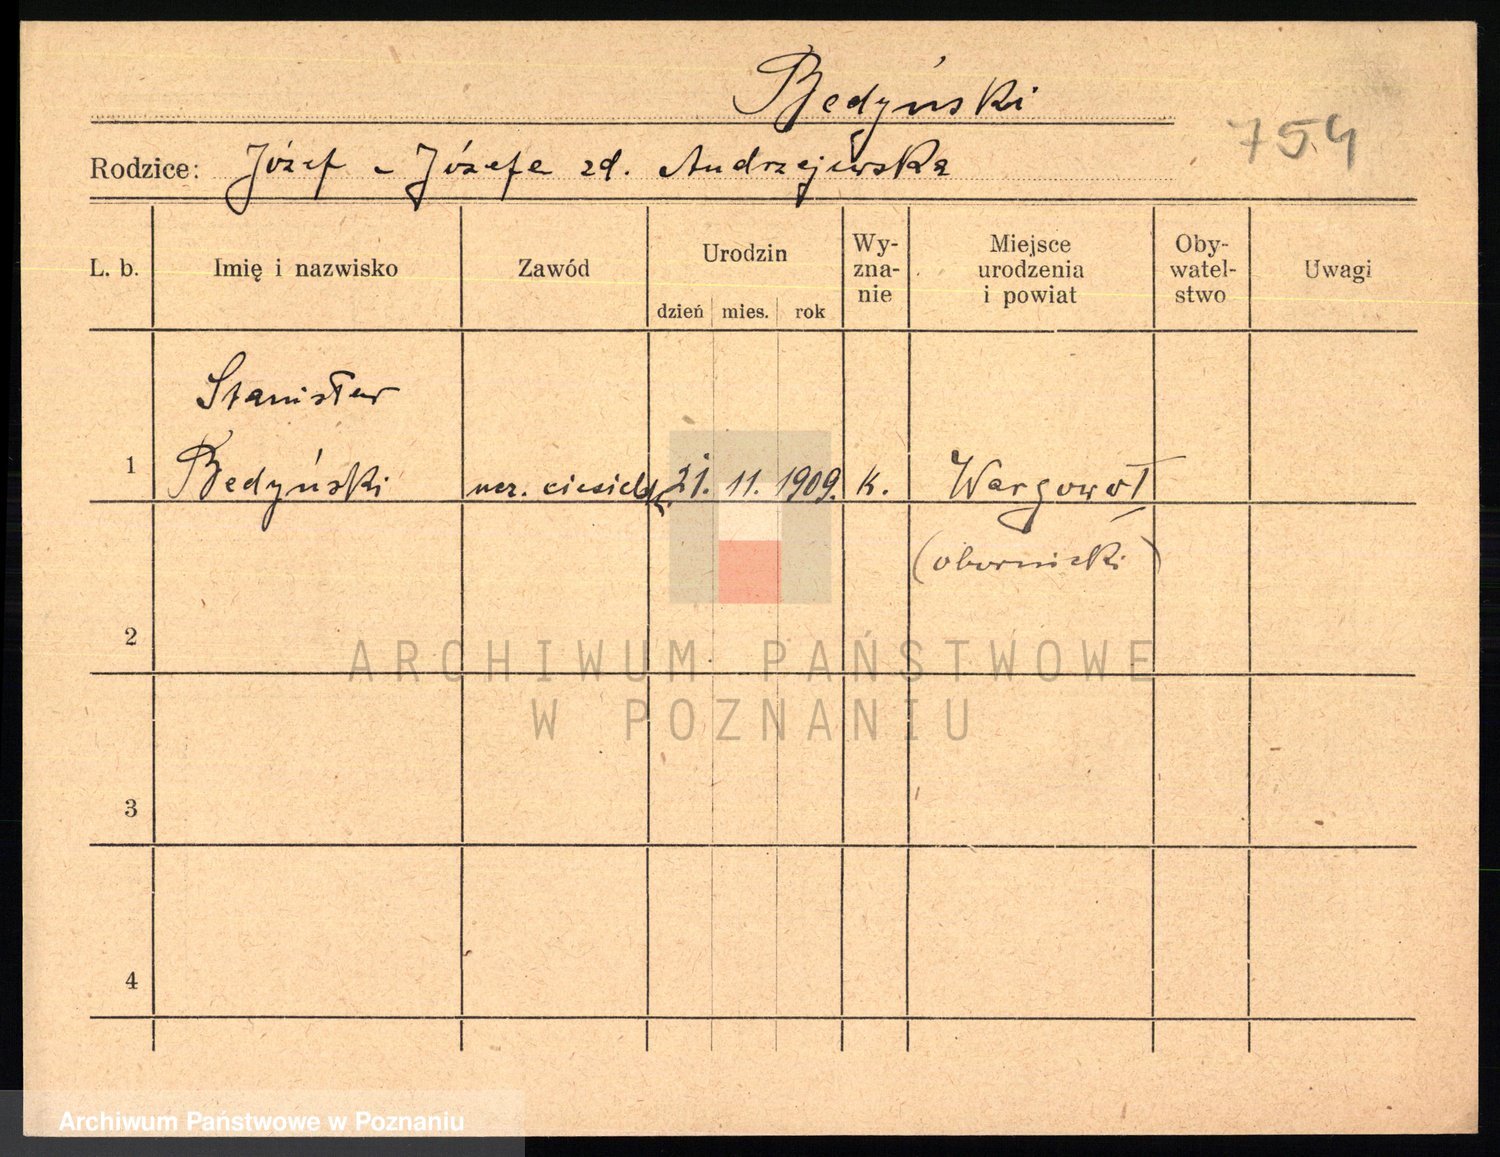 Bedyński
754
Rodzice: Józef - Józefa zd. Andrzejewska
L. b. Imię i nazwisko Zawód Urodzin dzień mies. rok Wy- zna- nie Miejsce urodzenia i powiat Oby- watel- stwo Uwagi
Stanisław
1 Bedyński ucz. ciesielski 21. 11. 1909. k. Wargowo
(obornicki)
2
ARCHIWUM PAŃSTWOWE
W POZNANIU
3
4
Archiwum Państwowe w Poznaniu